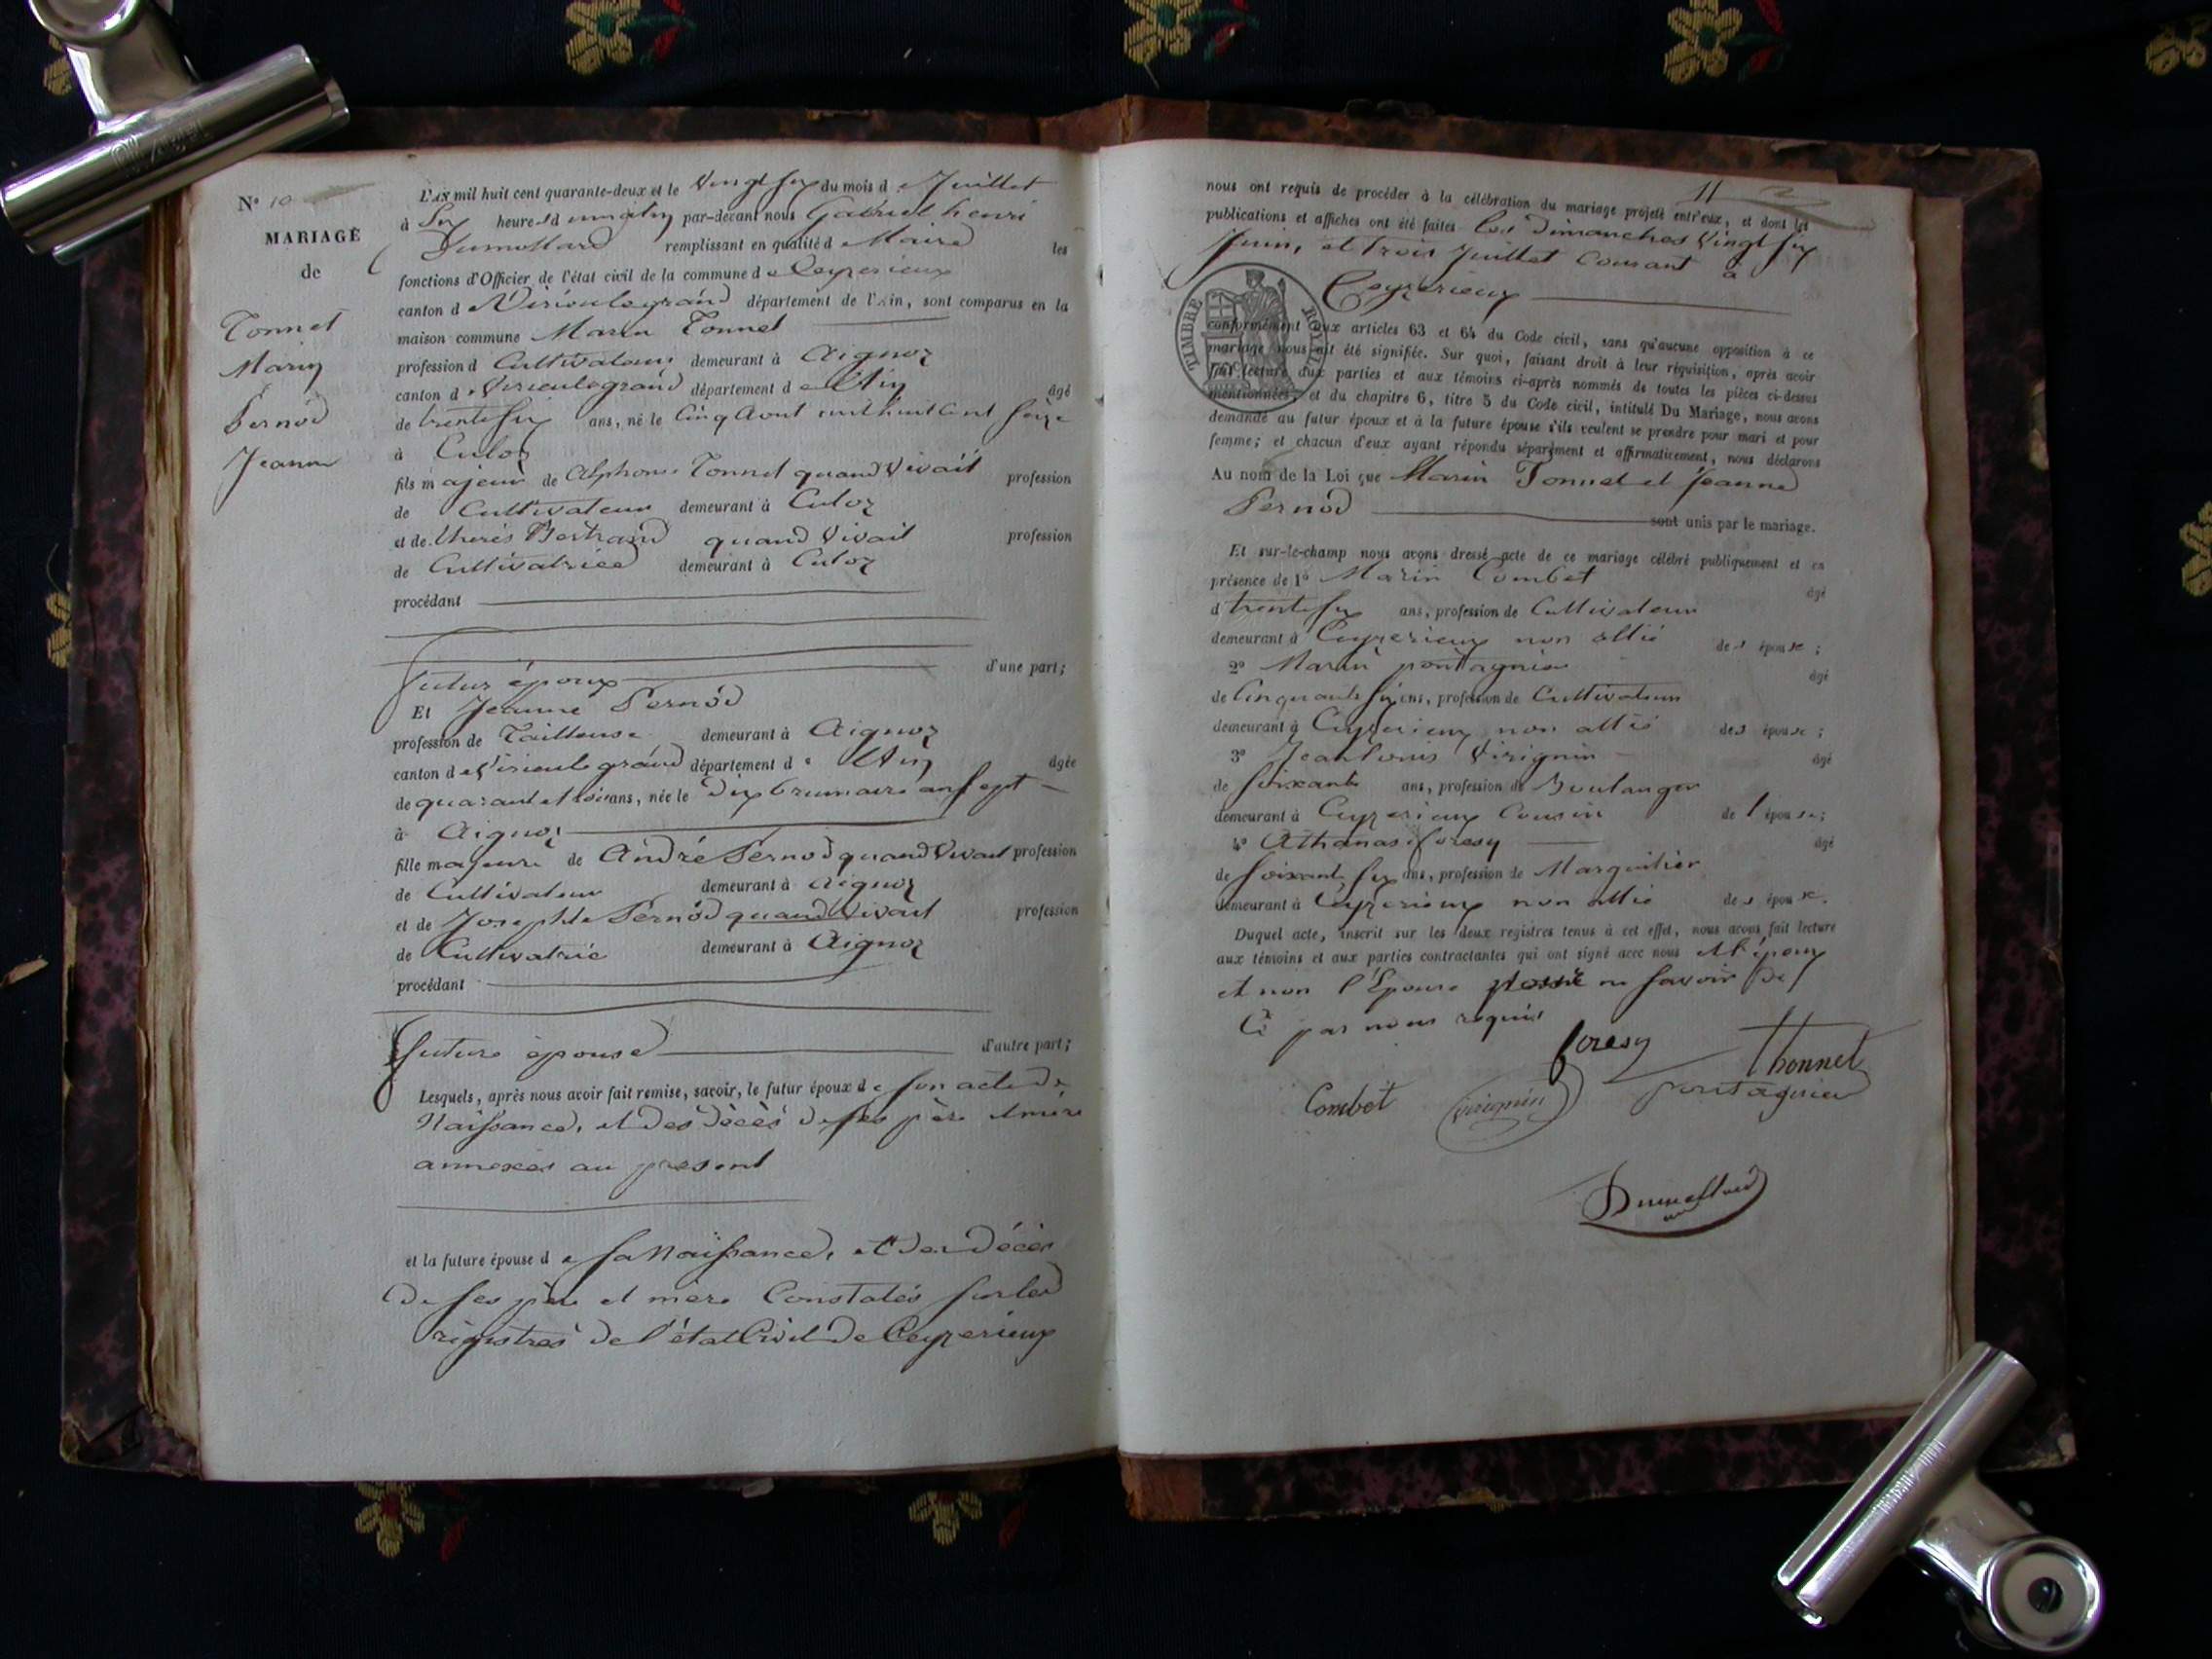 N° 10
MARIAGE
de
Tonnet
Marin
Pernod
Jeanne
L'an mil huit cent quarante-deux et le Vingt six du mois de Juillet
à Six heures du matin par-devant nous Gabriel henri
Dumollard remplissant en qualité de Maire les
fonctions d'Officier de l'état civil de la commune de Ceyzerieux
canton de Virieulegrand département de l'Ain, sont comparus en la
maison commune Marin Tonnet
profession d Cultivateur demeurant à Aignoz
canton de Virieulegrand département de l'Ain âgé
de trente six ans, né le Cinq Aout mil huit Cent Seize
à Culoz
fils majeur de Alphonse Tonnet quand Vivait profession
de Cultivateur demeurant à Culoz
et de therès Bertrand quand Vivait profession
de Cultivatrice demeurant à Culoz
procédant
futur époux d'une part;
Et Jeanne Pernod
profession de Tailleuse demeurant à Aignoz
canton de Virieulegrand département de l'Ain âgée
de quarante et trois ans, née le Dix brumaire an sept
à Aignoz
fille majeure de André Pernod quand Vivait profession
de Cultivateur demeurant à Aignoz
et de Josephte Pernod quand Vivait profession
de Cultivatrice demeurant à Aignoz
procédant
future épouse d'autre part;
Lesquels, après nous avoir fait remise, savoir, le futur époux de son acte de
Naissance, et des décès de ses père et mère
annexés au present
et la future épouse de sa Naissance, et des Décès
De ses père et mère Constatés sur les
régistres de l'état Civil de Ceyzerieux
11
nous ont requis de procéder à la célébration du mariage projeté entr'eux, et dont les
publications et affiches ont été faites les Dimanches Vingt six
Juin, et trois Juillet Courant à
Ceyzerieux
TIMBRE ROYAL
conformément aux articles 63 et 64 du Code civil, sans qu'aucune opposition à ce
mariage nous ait été signifiée. Sur quoi, faisant droit à leur réquisition, après avoir
fait lecture aux parties et aux témoins ci-après nommés de toutes les pièces ci-dessus
mentionnées, et du chapitre 6, titre 5 du Code civil, intitulé Du Mariage, nous avons
demandé au futur époux et à la future épouse s'ils veulent se prendre pour mari et pour
femme; et chacun d'eux ayant répondu séparément et affirmativement, nous déclarons
Au nom de la Loi que Marin Tonnet et Jeanne
Pernod sont unis par le mariage.
Et sur-le-champ nous avons dressé acte de ce mariage célébré publiquement et en
présence de 1° Marin Combet âgé
d trente six ans, profession de Cultivateur
demeurant à Ceyzerieux non allié des épouse;
2° Marin pontagnier âgé
de Cinquante six ans, profession de Cultivateur
demeurant à Ceyzerieux non allié des épouse;
3° Jean louis Virignin âgé
de Soixante ans, profession de Boulanger
demeurant à Ceyzerieux Cousin de l'épouse;
4° Athanase foresy âgé
de Soixante six ans, profession de Marguilier
demeurant à Ceyzerieux non allié des épouse.
Duquel acte, inscrit sur les deux registres tenus à cet effet, nous avons fait lecture
aux témoins et aux parties contractantes qui ont signé avec nous et l'époux
et non l'Epouse ne savoir de
Ce par nous requis
foresy
thonnet
Combet
virignin
pontagnier
Dumollard